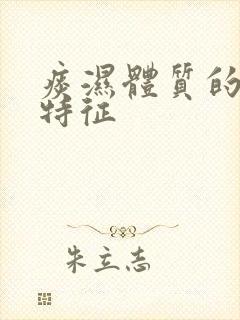 痰濕體質的
特征
朱立志